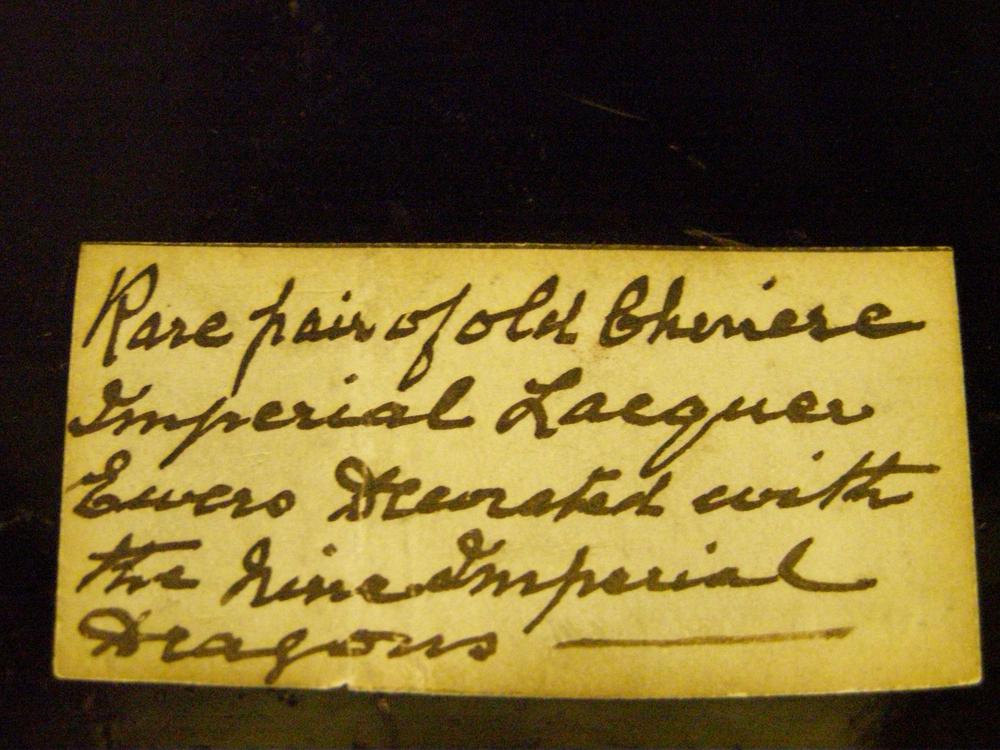 Rare pair of old Chinese
Imperial Lacquer
Ewers Decorated with
the Nine Imperial
Dragons